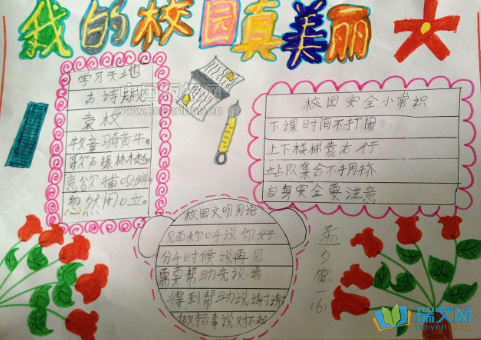 我的校园真美丽
学习天地
古诗
牧童骑黄牛
意欲捕鸣蝉
忽然闭口立
校园安全小常识
下课时间不打闹
上下楼梯靠右行
站队集合不用挤
自身安全要注意
校园文明用语
见面称呼说你好
分手时候说再见
需要帮助先说请
得到帮助说谢谢
做错事说对不起
瑞文网